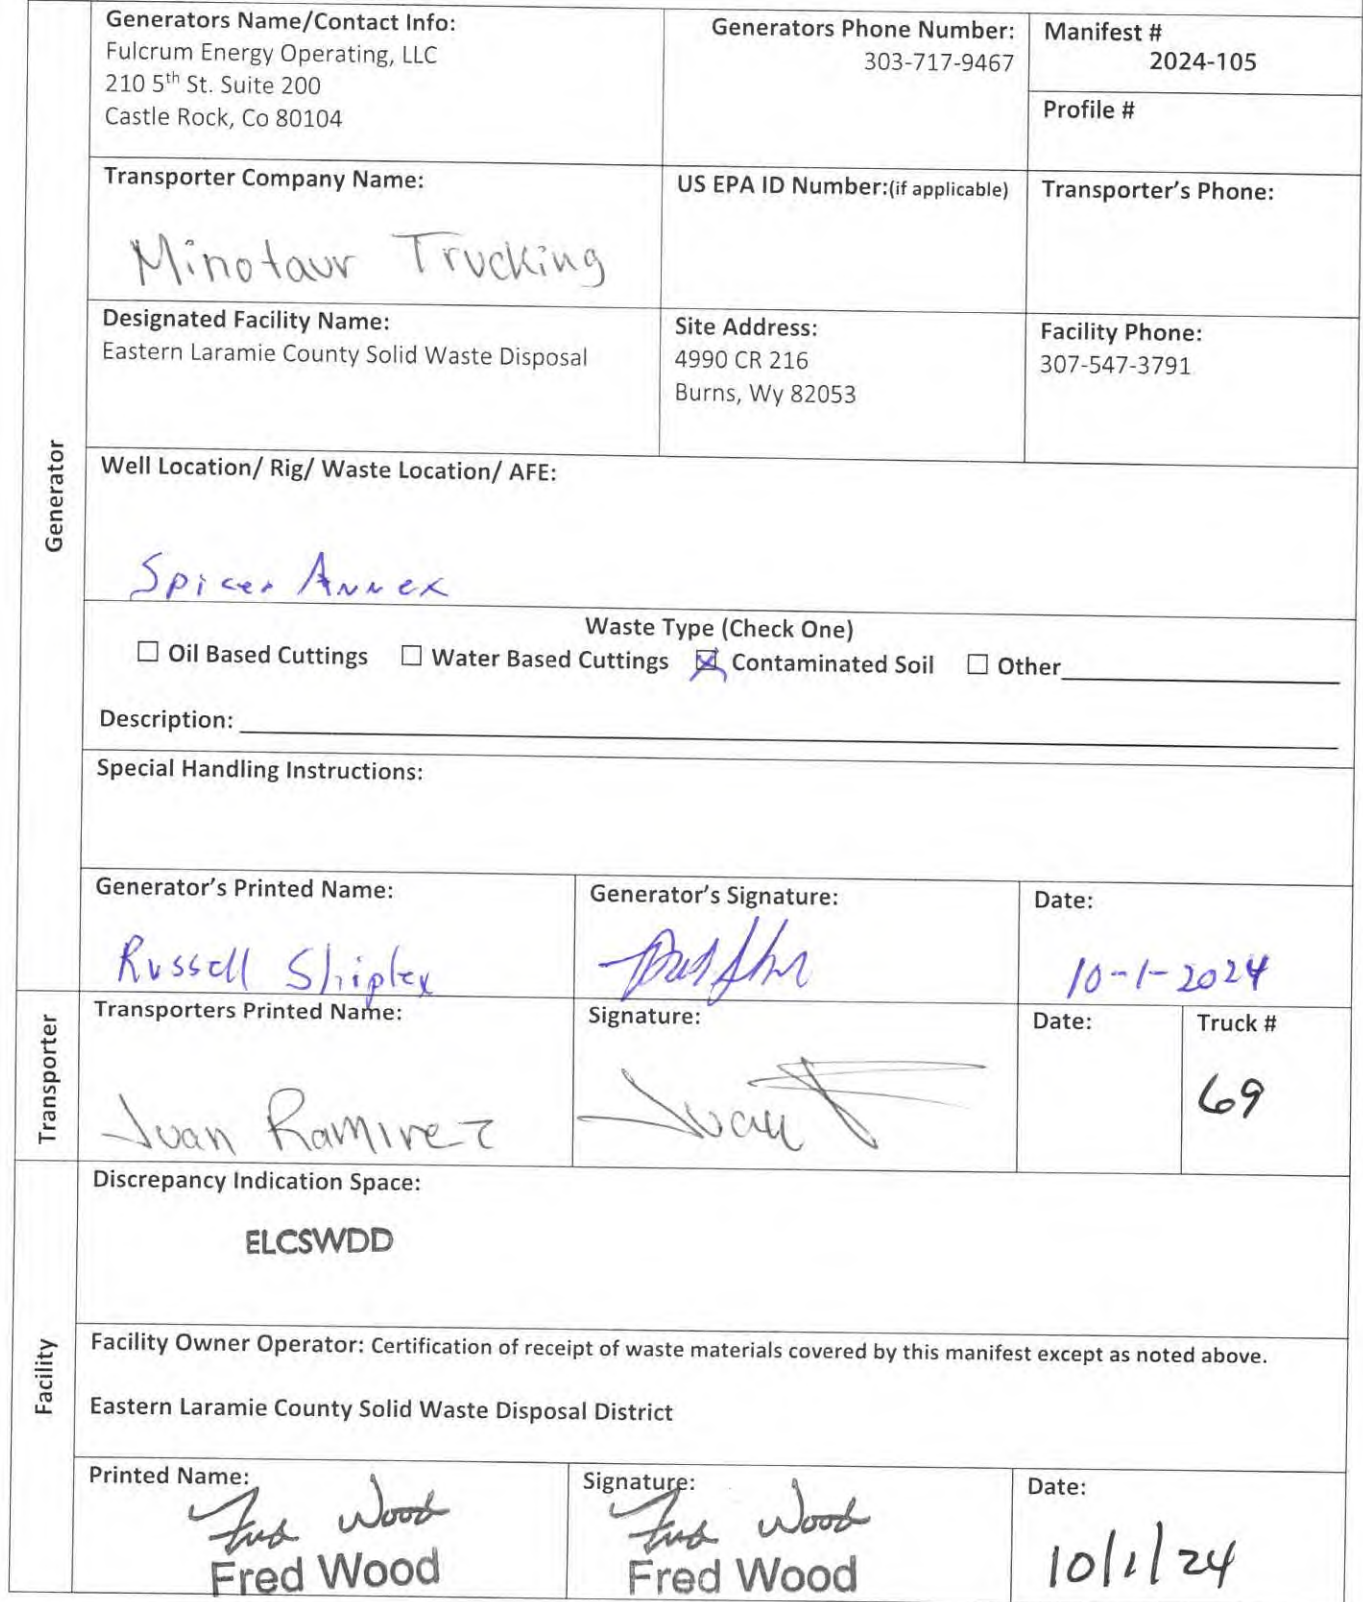 Generators Name/Contact Info:
Fulcrum Energy Operating, LLC
210 5th St. Suite 200
Castle Rock, Co 80104
Generators Phone Number:
303-717-9467
Manifest #
2024-105
Profile #
Transporter Company Name:
Minotaur Trucking
US EPA ID Number:(if applicable)
Transporter's Phone:
Designated Facility Name:
Eastern Laramie County Solid Waste Disposal
Site Address:
4990 CR 216
Burns, Wy 82053
Facility Phone:
307-547-3791
Generator
Well Location/ Rig/ Waste Location/ AFE:
Spicer Annex
Waste Type (Check One)
☐ Oil Based Cuttings ☐ Water Based Cuttings ☒ Contaminated Soil ☐ Other
Description:
Special Handling Instructions:
Generator's Printed Name:
Russell Shipley
Generator's Signature:
Date:
10-1-2024
Transporter
Transporters Printed Name:
Juan Ramirez
Signature:
Juan
Date:
Truck #
69
Facility
Discrepancy Indication Space:
ELCSWDD
Facility Owner Operator: Certification of receipt of waste materials covered by this manifest except as noted above.
Eastern Laramie County Solid Waste Disposal District
Printed Name:
Fred Wood
Fred Wood
Signature:
Fred Wood
Fred Wood
Date:
10/1/24